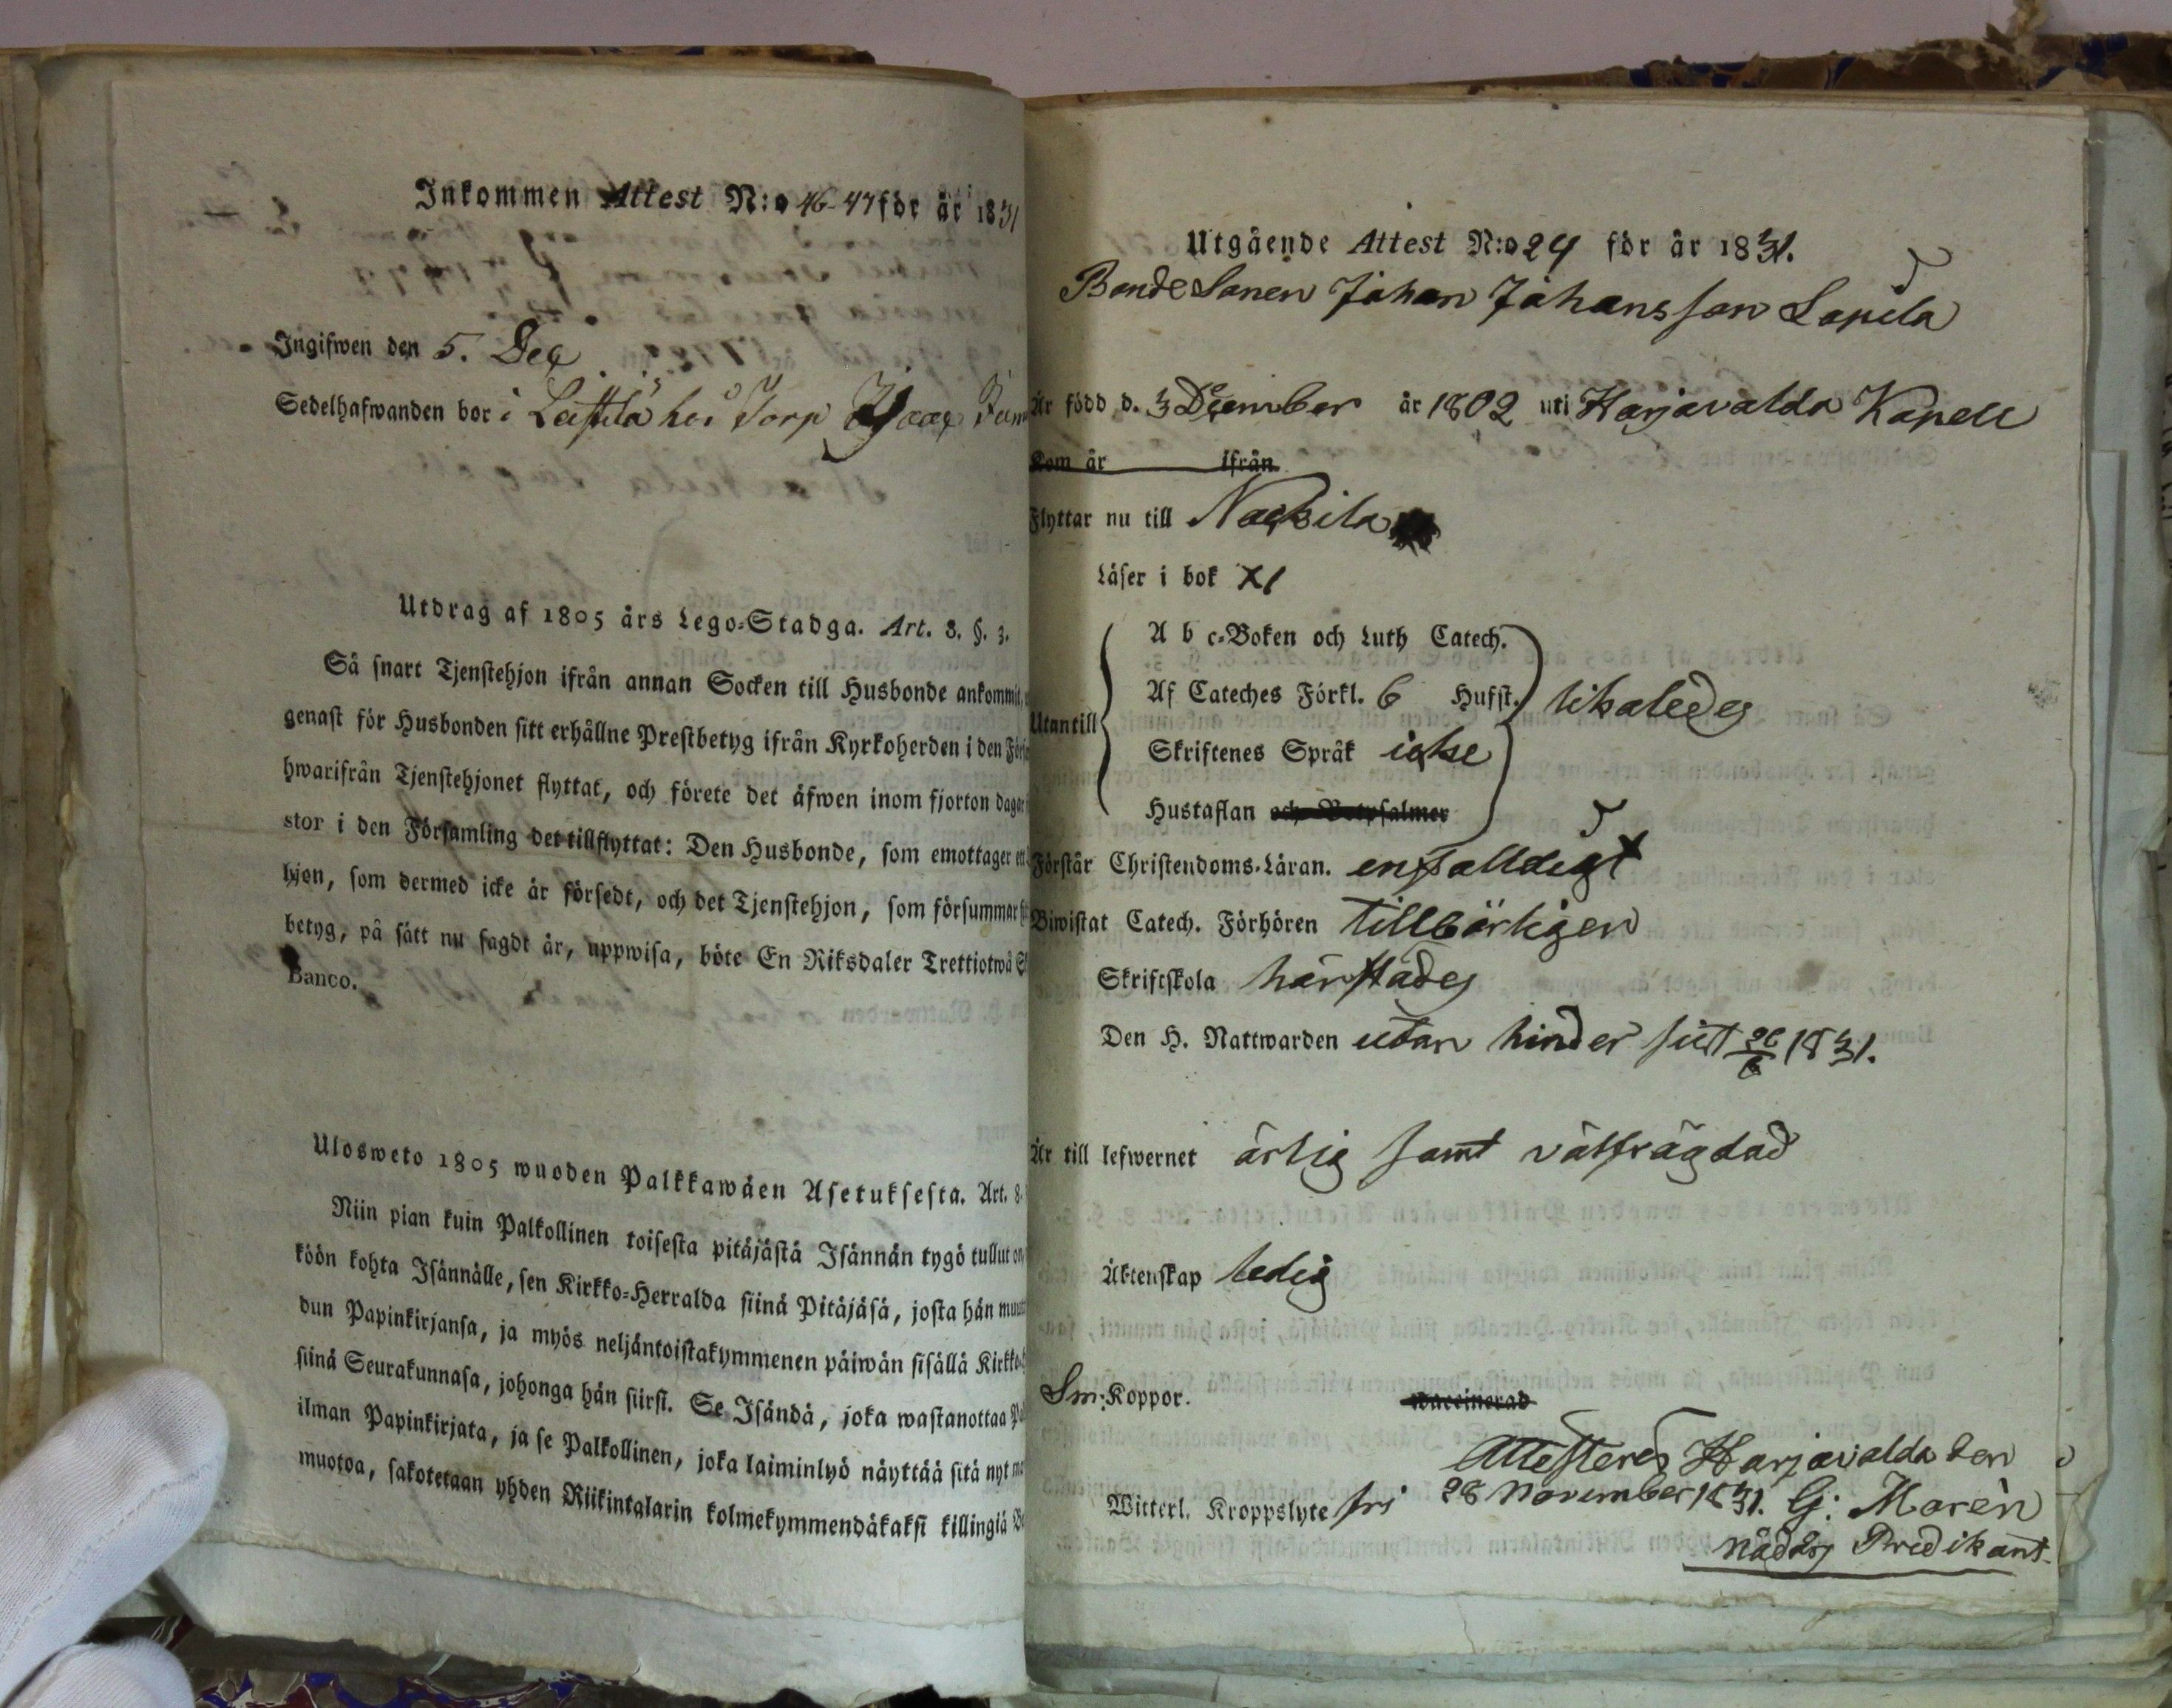 Inkommen Attest N:o 46-47 för år 1831
Ingifwen den 5. Dec
Sedelhafwanden bor i hos Torp
Utdrag af 1805 års Lego-Stadga. Art. 8. §. 3.
Så snart Tjenstehjon ifrån annan Socken till Husbonde ankommit,
genast för Husbonden sitt erhållne Prestbetyg ifrån Kyrkoherden i den
hwarifrån Tjenstehjonet flyttat, och förete det äfwen inom fjorton dagar
stor i den Församling det tillflyttat: Den Husbonde, som emottager ett
hjon, som dermed icke är försedt, och det Tjenstehjon, som försummar
betyg, på sätt nu sagdt är, uppwisa, böte En Riksdaler Trettiotwå
Banco.
Ulosweto 1805 wuoden Palkkawäen Asetuksesta. Art. 8.
Niin pian kuin Palkollinen toisesta pitäjästä Isännän tygö tullut on,
köön kohta Isännälle, sen Kirkko-Herralda siinä Pitäjäsä, josta hän
dun Papinkirjansa, ja myös neljäntoistakymmenen päiwän sisällä
siinä Seurakunnasa, johonga hän siirsi. Se Isändä, joka wastanottaa
ilman Papinkirjata, ja se Palkollinen, joka laiminlyö näyttää sitä nyt
muotoa, sakotetaan yhden Riikintalarin kolmekymmendäkaksi killingiä
Utgående Attest N:o 24 för år 1831.
BondeSonen Johan Johansson Lapila
Är född d. 3 December år 1802 uti Harjavalda Kapell
Kom år ifrån
Flyttar nu till Nackila
Läser i bok XI
Utantill
A b c-Boken och Luth Catech.
Af Cateches Förkl. 6 Hufst.
Skriftenes Språk icke
Hustaflan och Botpsalmer
likaledes
Förstår Christendoms-Läran. enfalldigt
Biwistat Catech. Förhören tillbörligen
Skriftskola härstädes
Den H. Nattwarden utan hinder sist 26/6 1831.
Är till lefwernet ärlig samt välfrägdad
Äktenskap ledig
Sm: Koppor. waccinerad
Witterl. Kroppslyte fri
Attesteres Harjavalda den
28 November 1831. G: Moren
nådårs Predikant.